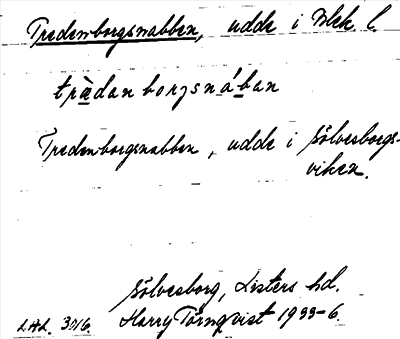 Tredenborgsnabben, udde i Blek. l.
trädanborjsnában
Tredenborgsnabben, udde i Sölvesborgs-
viken.
Sölvesborg, Listers hd.
LAL. 3016. Harry Törnqvist 1933-6.